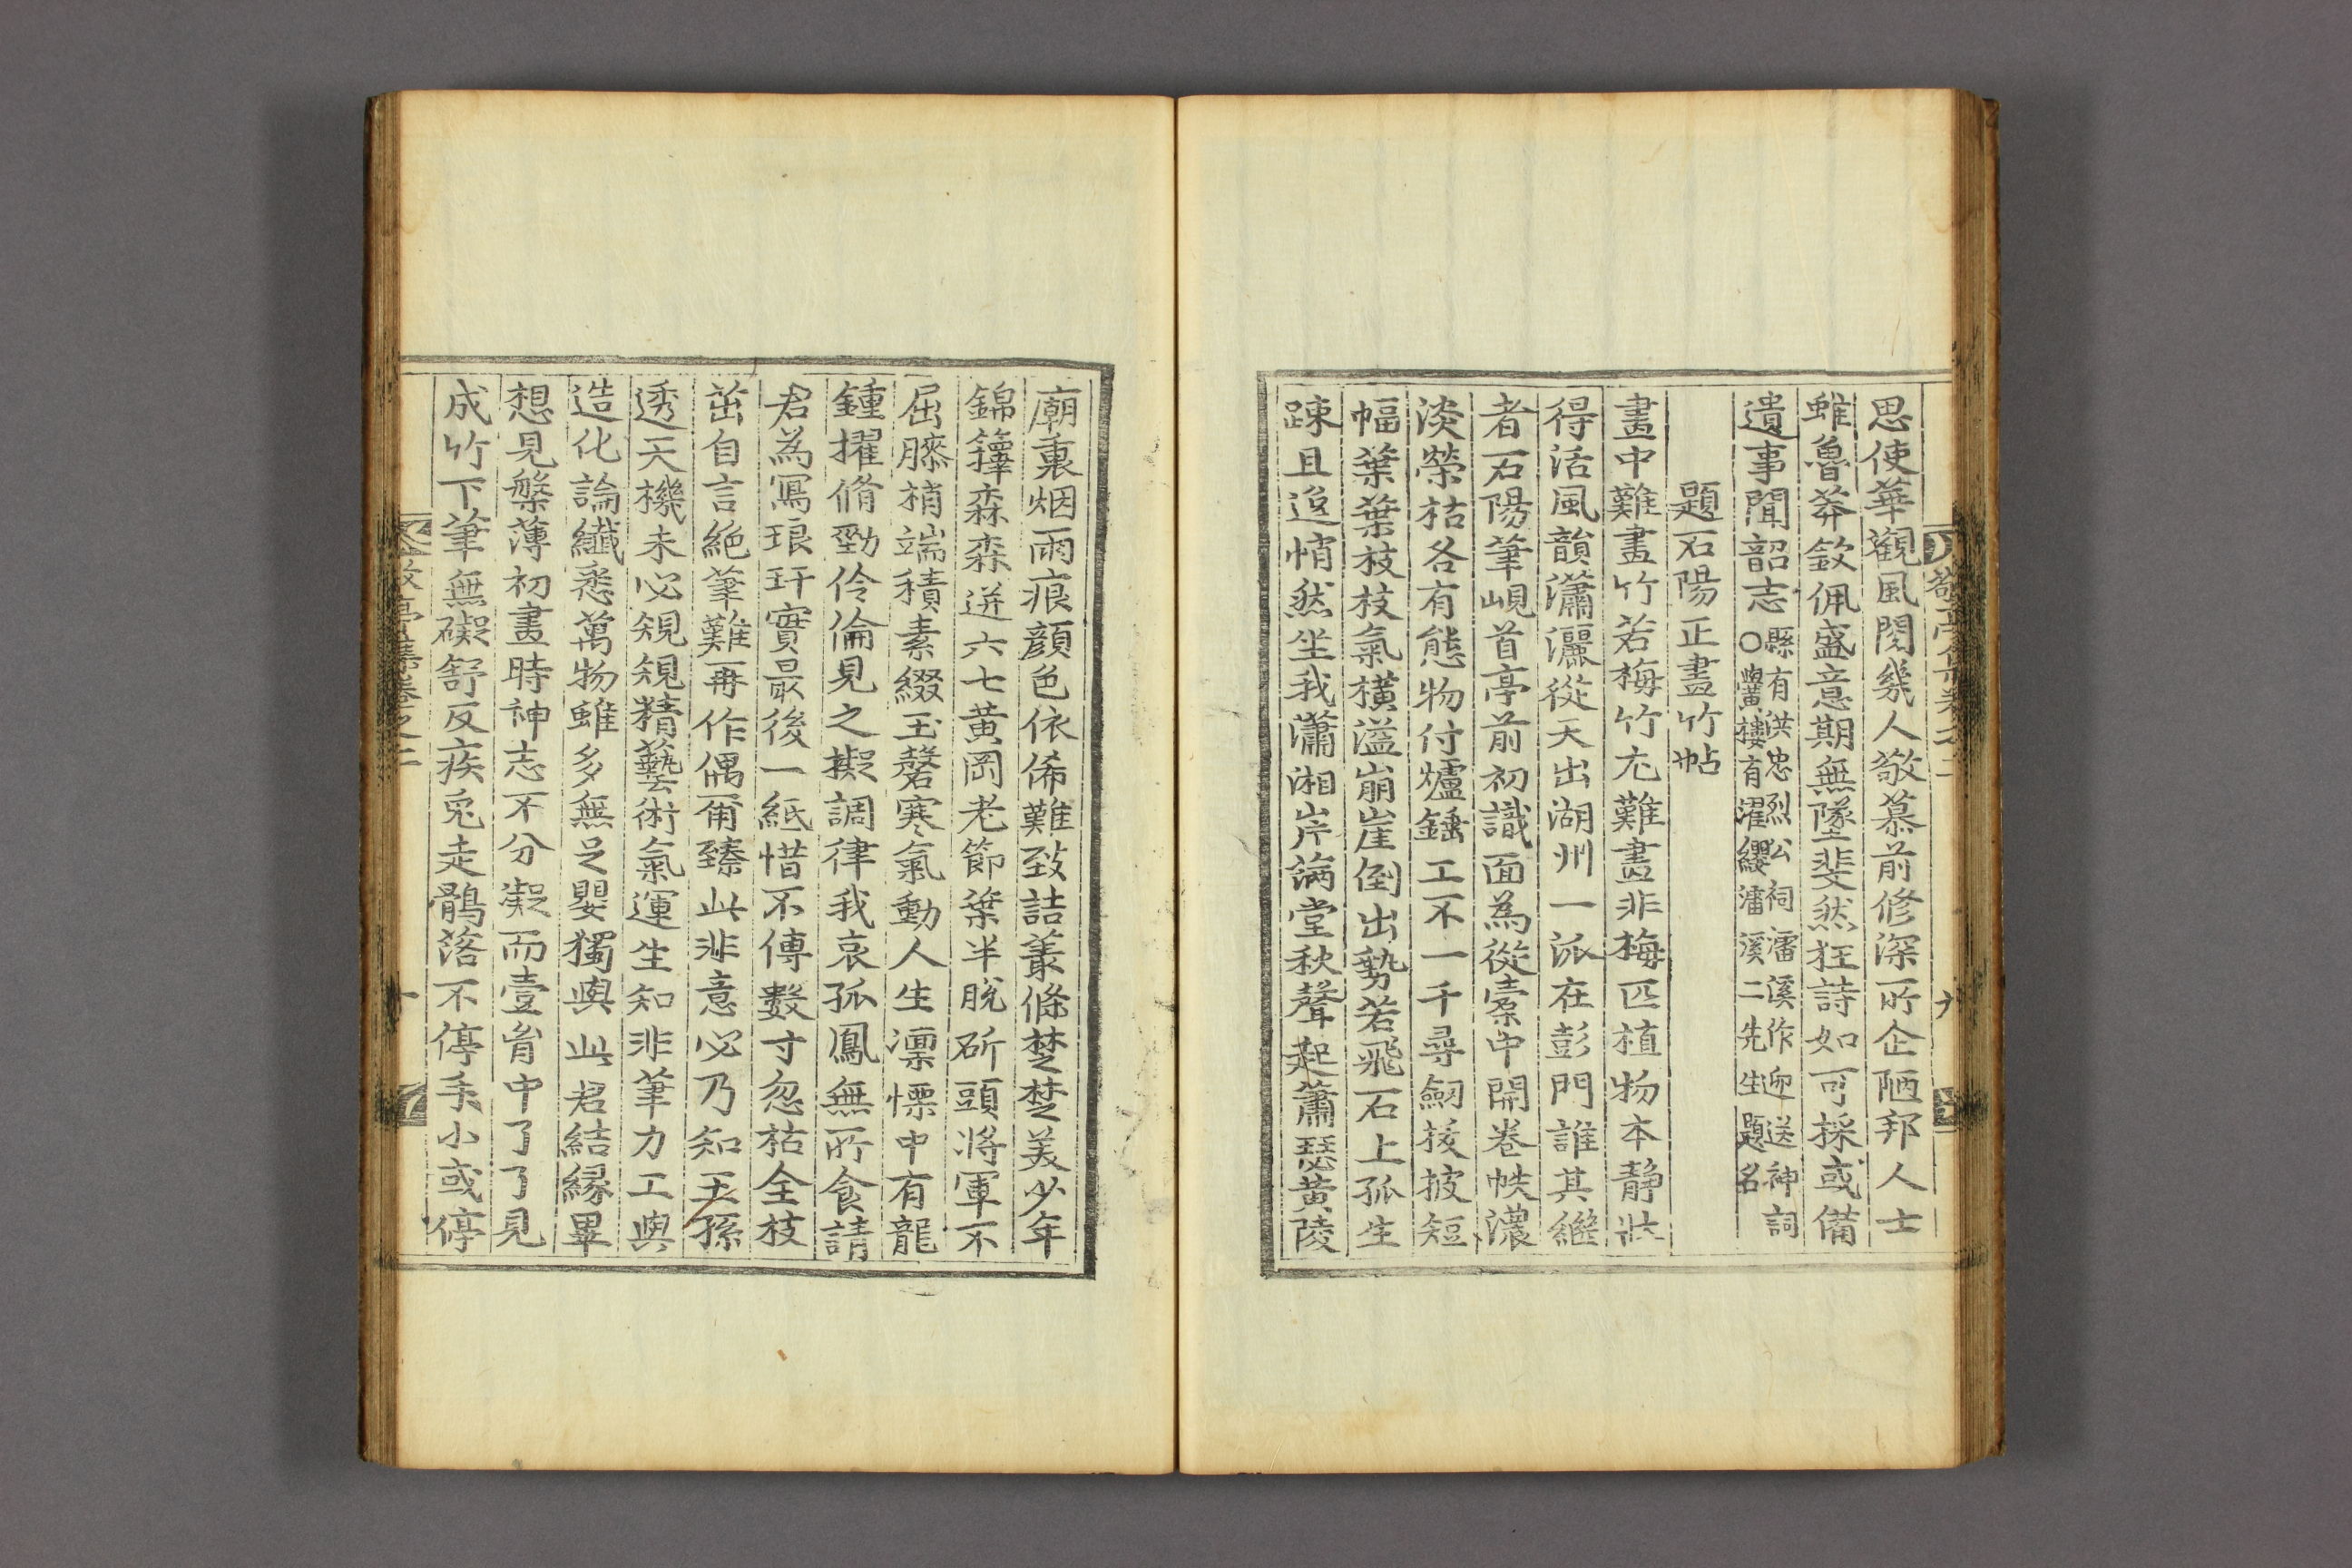 敬亭集卷之二
九
思使華觀風閱幾人敬慕前修深所企陋邦人士
雖魯莽欽佩盛意期無墜斐然狂詩如可採或備
遺事聞韶志
縣有洪忠烈公祠㵢溪作迎送神詞
○黌樓有濯纓㵢溪二先生題名
題石陽正畫竹帖
畫中難畫竹若梅竹尤難畫非梅匹植物本静粧
得活風韻瀟灑從天出湖州一派在彭門誰其繼
者石陽筆峴首亭前初識面為從槖中開卷帙濃
淡榮枯各有態物付爐錘工不一千尋劒拔披短
幅葉葉枝枝氣橫溢崩崖倒出勢若飛石上孤生
踈且逸悄然坐我瀟湘岸滿堂秋聲起蕭瑟黃陵
廟裏烟雨痕顔色依俙難致詰叢條楚楚美少年
錦籜森森迸六七黃岡老節葉半脫斫頭將軍不
屈膝梢端積素綴玉磬寒氣動人生凜慄中有龍
鍾擢脩勁伶倫見之擬調律我哀孤鳳無所食請
君為寫琅玕實最後一紙惜不傳數寸忽枯全枝
茁自言絶筆難再作偶爾臻此非意必乃知王孫
透天機未必規規精藝術氣運生知非筆力工與
造化論纖悉萬物雖多無足嬰獨與此君結緣畢
想見槃薄初畫時神志不分凝而壹胷中了了見
成竹下筆無礙舒反疾兎走鶻落不停手小或停
敬亭集卷之二
十